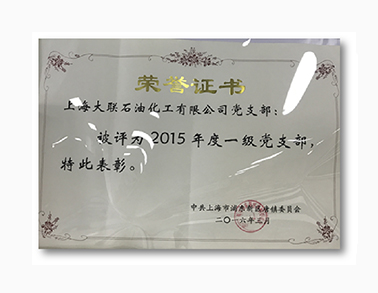 荣誉证书
上海大联石油化工有限公司党支部：
被评为2015年度一级党支部，
特此表彰。
中共上海市浦东新区唐镇委员会
二〇一六年三月